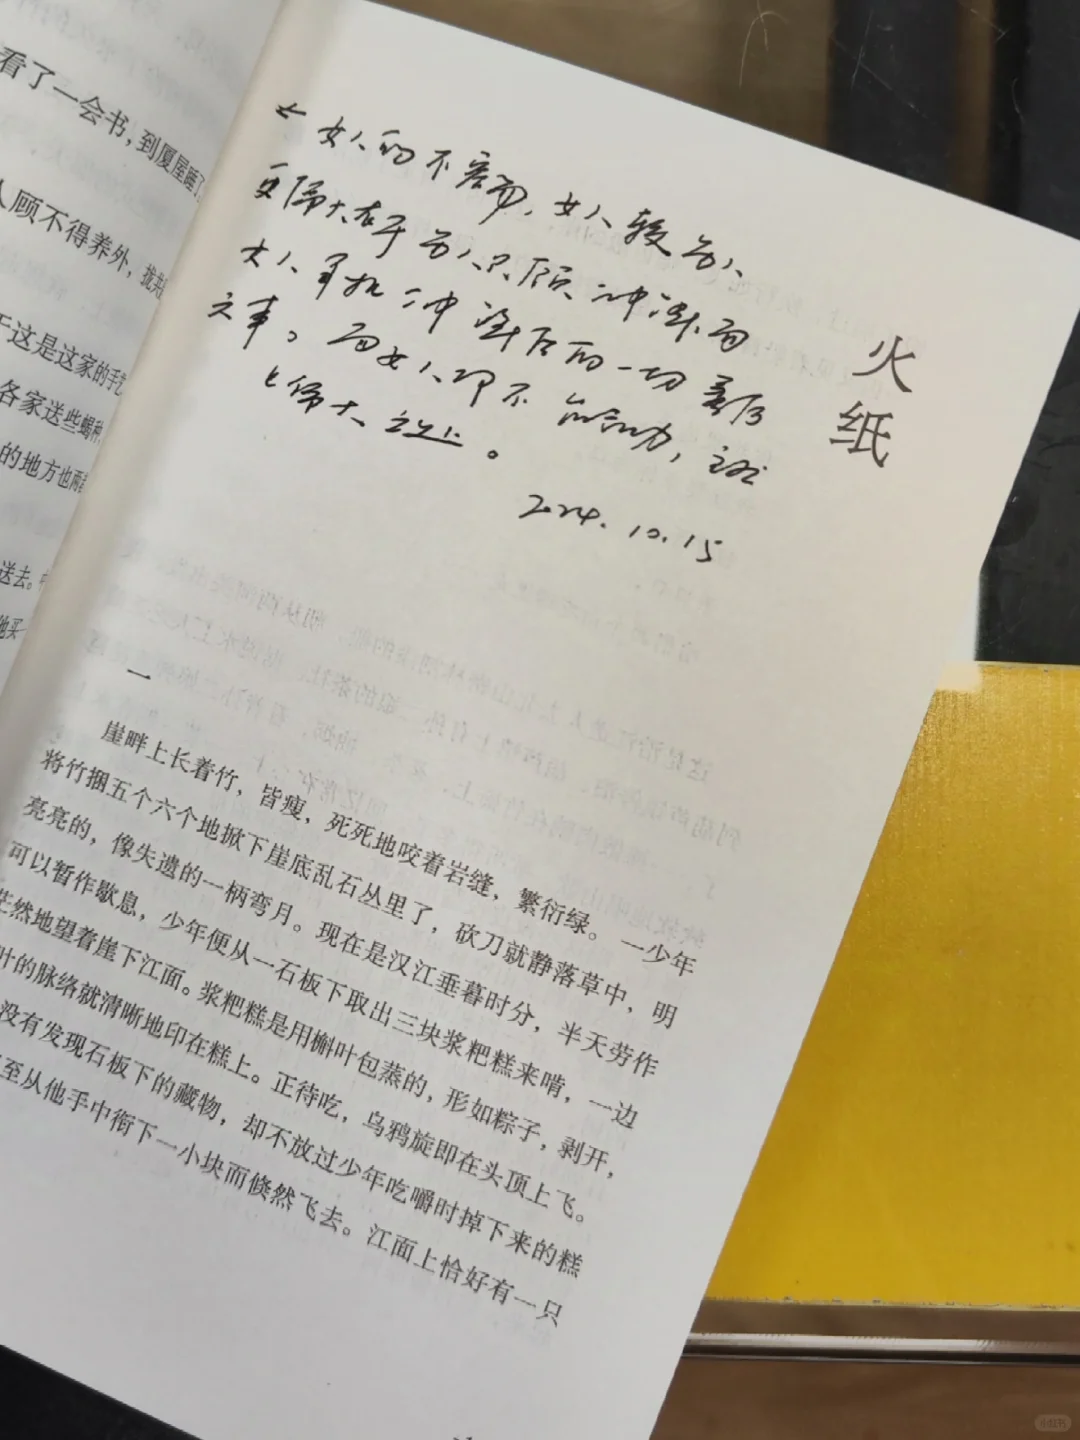 看了一会书,到厦屋睡了
人顾不得养外,拢共
于这是这家的手艺
各家送些蝎种
的地方也两
送去。
他买一
← 女人的不容易,女人较男人
更伟大在于男人只顾冲 而
女人承担 冲 后的一切善后
之事。而女人却不 ,
伟大之处。
2024.10.15
火纸
一
崖畔上长着竹,皆瘦,死死地咬着岩缝,繁衍绿。一少年
将竹捆五个六个地掀下崖底乱石丛里了,砍刀就静落草中,明
亮亮的,像失遗的一柄弯月。现在是汉江垂暮时分,半天劳作
可以暂作歇息,少年便从一石板下取出三块浆粑糕来啃,一边
茫然地望着崖下江面。浆粑糕是用槲叶包蒸的,形如粽子,剥开,
叶的脉络就清晰地印在糕上。正待吃,乌鸦旋即在头顶上飞。
没有发现石板下的藏物,却不放过少年吃嚼时掉下来的糕
至从他手中衔下一小块而倏然飞去。江面上恰好有一只
小红书